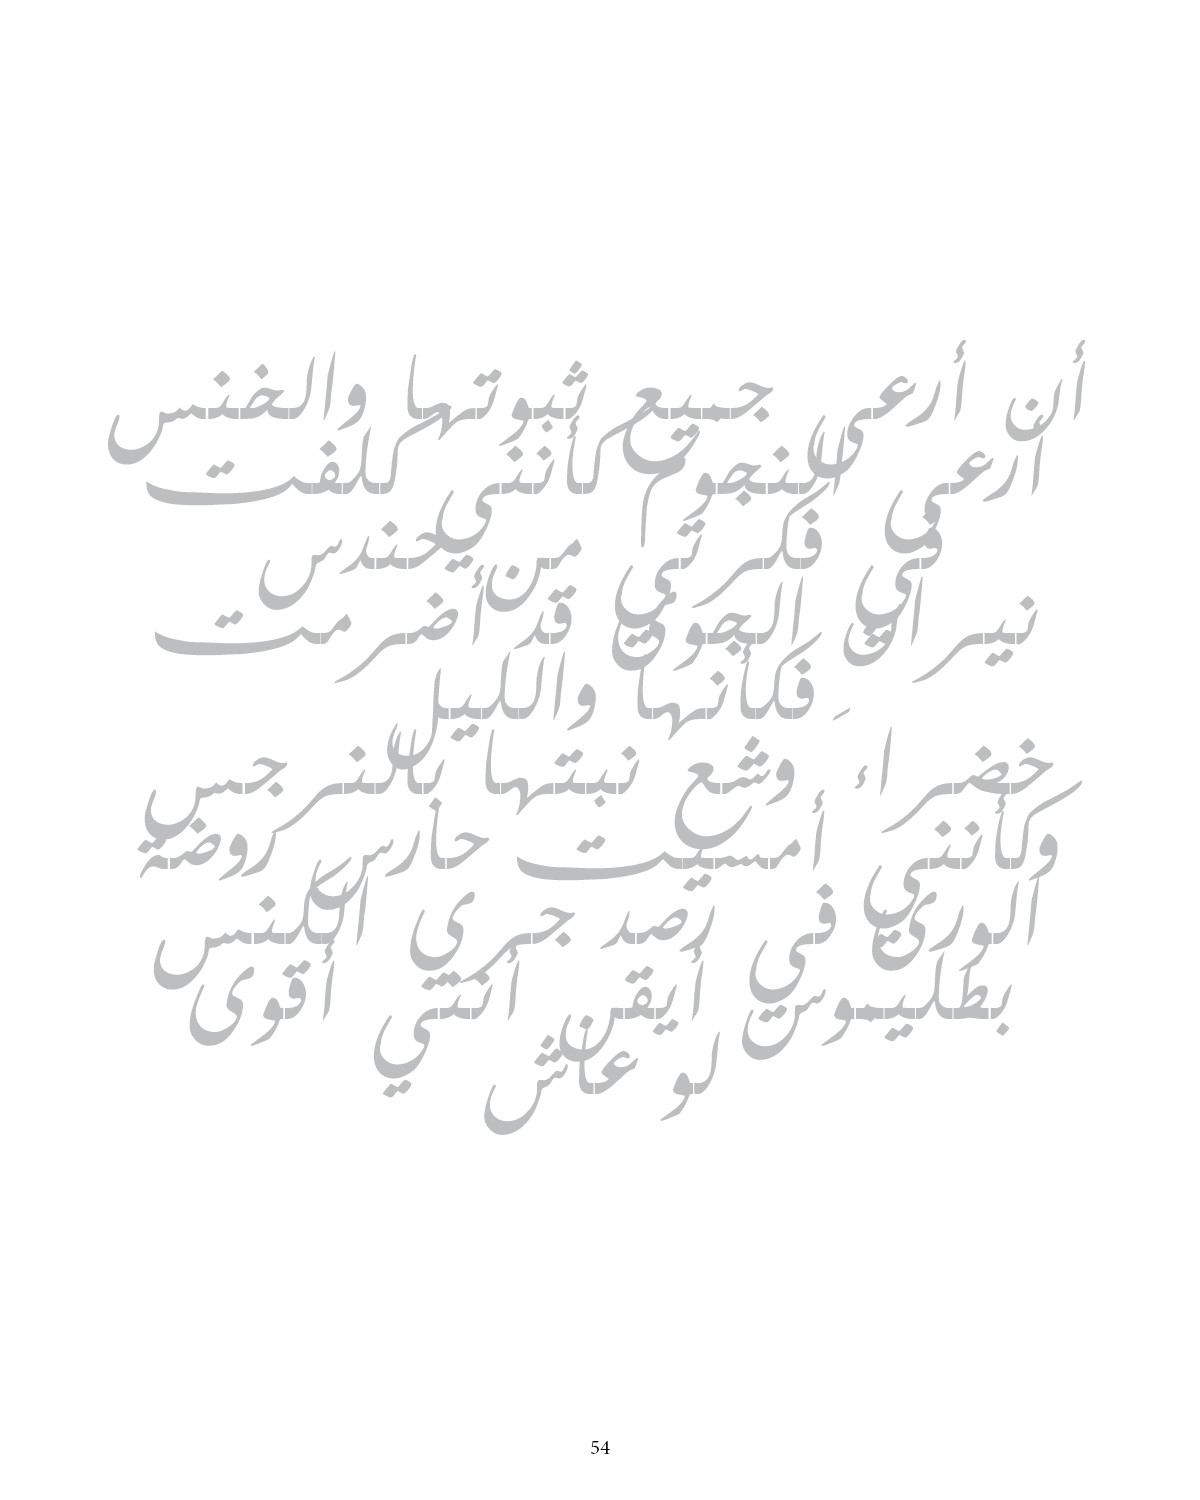 أن أرعى جميع ثبوتها والخنس
أرعى النجوم كأنني كلفت
في فكرتي من حندس
نيران الجوى قد أضرمت
فكأنها والليل
خضراء وشع نبتها بالنرجس
وكأنني أمسيت حارس روضة
الورى في رصد جري الكنس
بطليموس أيقن أنني أقوى
لو عاش
54